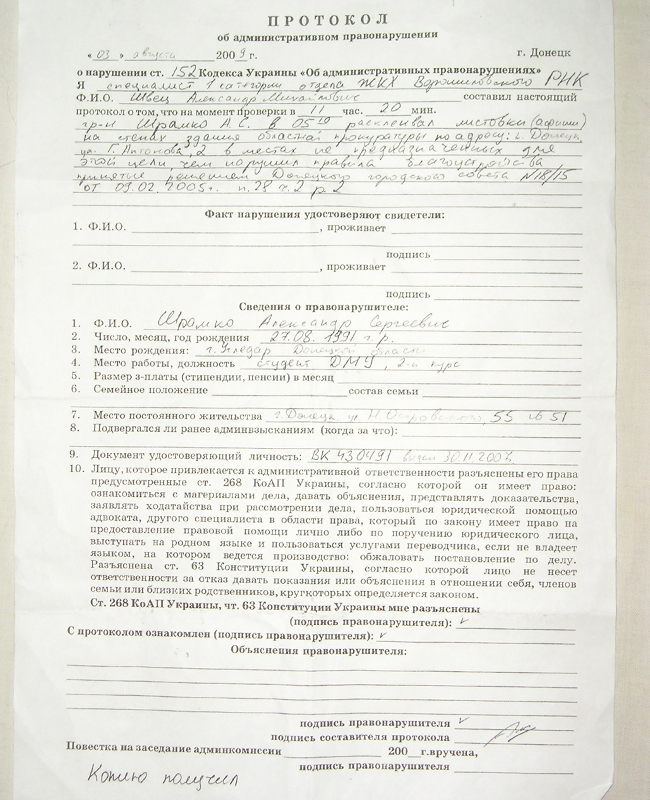 ПРОТОКОЛ
об административном правонарушении
« 03 » августа 2009 г. г. Донецк
о нарушении ст. 152 Кодекса Украины «Об административных правонарушениях»
Я специалист 1 категории отдела ЖКХ Ворошиловского РИК
Ф.И.О. Швец Александр Михайлович составил настоящий
протокол о том, что на момент проверки в 11 час. 20 мин.
гр-н Шрамко А.С. в 05 10 расклеивал листовки (афиши)
на стенах здания областной прокуратуры по адресу: г. Донецк,
ул. Г. Антонова, 2 в местах не предназначенных для
этой цели, чем нарушил правила благоустройства
принятые решением Донецкого городского совета N18/15
от 09.02.2005г. п. 28 ч. 2 р 2
Факт нарушения удостоверяют свидетели:
1. Ф.И.О. , проживает
подпись
2. Ф.И.О. , проживает
подпись
Сведения о правонарушителе:
1. Ф.И.О. Шрамко Александр Сергеевич
2. Число, месяц, год рождения 27.08.1991 г.р.
3. Место рождения: г. Угледар Донецкой области
4. Место работы, должность студент ДМУ, 2-й курс
5. Размер з-платы (стипендии, пенсии) в месяц
6. Семейное положение состав семьи
7. Место постоянного жительства г. Донецк ул. Н Островского, 55 51
8. Подвергался ли ранее админвзысканиям (когда за что):
9. Документ удостоверяющий личность: ВК 430491 30.11.2007
10. Лицу, которое привлекается к административной ответственности разъяснены его права
предусмотренные ст. 268 КоАП Украины, согласно которой он имеет право:
ознакомиться с материалами дела, давать объяснения, представлять доказательства,
заявлять ходатайства при рассмотрении дела, пользоваться юридической помощью
адвоката, другого специалиста в области права, который по закону имеет право на
предоставление правовой помощи лично либо по поручению юридического лица,
выступать на родном языке и пользоваться услугами переводчика, если не владеет
языком, на котором ведется производство: обжаловать постановление по делу.
Разъяснена ст. 63 Конституции Украины, согласно которой лицо не несет
ответственности за отказ давать показания или объяснения в отношении себя, членов
семьи или близких родственников, круг которых определяется законом.
Ст. 268 КоАП Украины, чт. 63 Конституции Украины мне разъяснены
(подпись правонарушителя):
С протоколом ознакомлен (подпись правонарушителя):
Объяснения цравонарушителя:
подпись правонарушителя
подпись составителя протокола
Повестка на заседание админкомиссии 200 г.вручена,
подпись правонарушителя
Копию получил